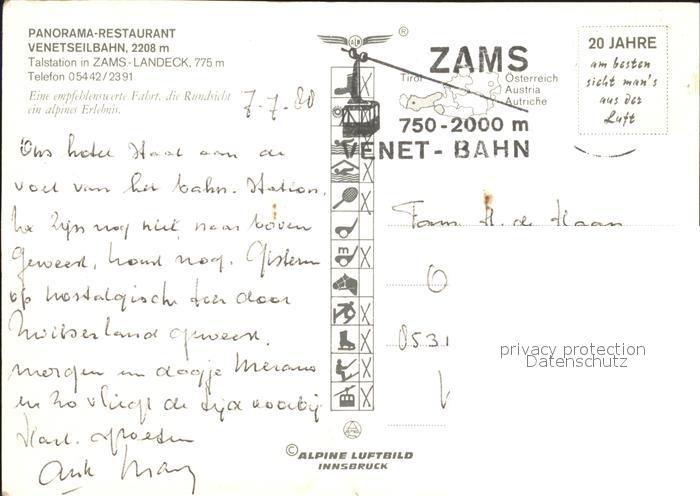 PANORAMA-RESTAURANT
VENETSEILBAHN, 2208 m
Talstation in ZAMS-LANDECK, 775 m
Telefon 05442/2391
Eine empfehlenswerte Fahrt, die Rundsicht
ein alpines Erlebnis.
7-7-80
Ons hotel staat aan de
voet van het bahn-station.
We zijn nog niet naar boven
geweest, komt nog. Gisteren
op nostalgische toer door
Zwitserland geweest.
morgen een dagje Merano
en zo vliegt de tijd voorbij
Hart. groeten
®
ZAMS
Tirol
Österreich
Austria
Autriche
750-2000 m
VENET-BAHN
20 JAHRE
am besten
sieht man's
aus der
Luft
m
Fam. H. de Haan
8531
privacy protection
Datenschutz
© ALPINE LUFTBILD
INNSBRUCK